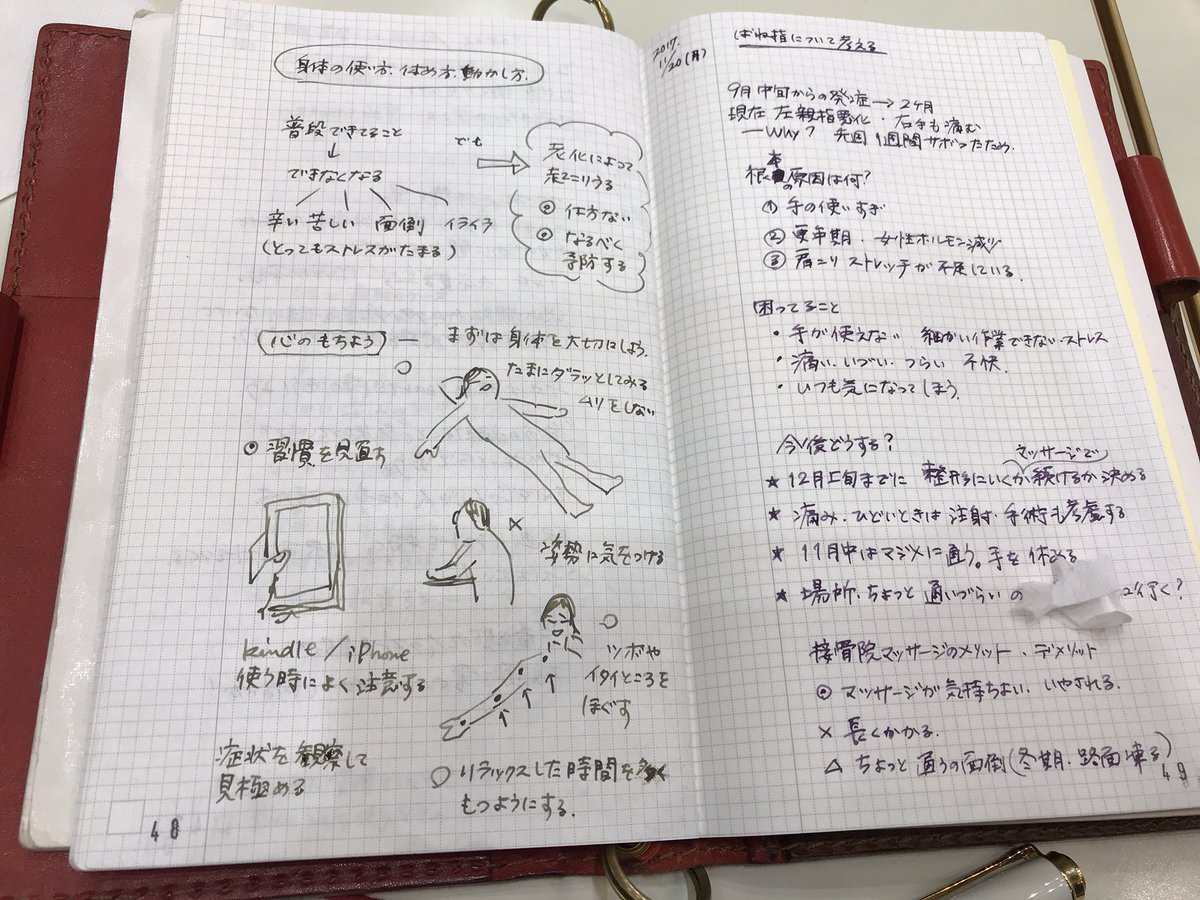 身体の使い方、休め方、動かし方。
普段できてること
↓
できなくなる
辛い 苦しい 面倒 イライラ
(とってもストレスがたまる)
でも
老化によって
起こりうる
◎ 仕方ない
◎ なるべく
予防する
心のもちよう — まずは身体を大切にしよう。
○ たまにダラッとしてみる
ムリをしない
◎ 習慣を見直す
×
姿勢に気をつける
kindle / iPhone
使う時によく注意する
○
ツボや
イタイところを
ほぐす
症状を観察して
見極める
○ リラックスした時間を多く
もつようにする。
48
2017.
11/20(月)
ばね指について考える
9月中旬からの発症→2ヶ月
現在 左親指悪化・右手も痛む
— Why? 先週1週間サボったため。
根本の原因は何?
① 手の使いすぎ
② 更年期・女性ホルモン減少
③ 肩こり ストレッチが不足している。
困ってること
・手が使えない 細かい作業できない ストレス
・痛い、いづい、つらい 不快。
・いつも気になってしまう。
今後どうする?
★ 12月上旬までに 整形にいくか マッサージで続けるか決める
★ 痛み・ひどいときは注射・手術も考慮する
★ 11月中はマジメに通う。手を休める
★ 場所・ちょっと通いづらいの 行く?
接骨院マッサージのメリット・デメリット
◎ マッサージが気持ちよい、いやされる。
× 長くかかる。
△ ちょっと通うの面倒(冬期・路面凍る)
49